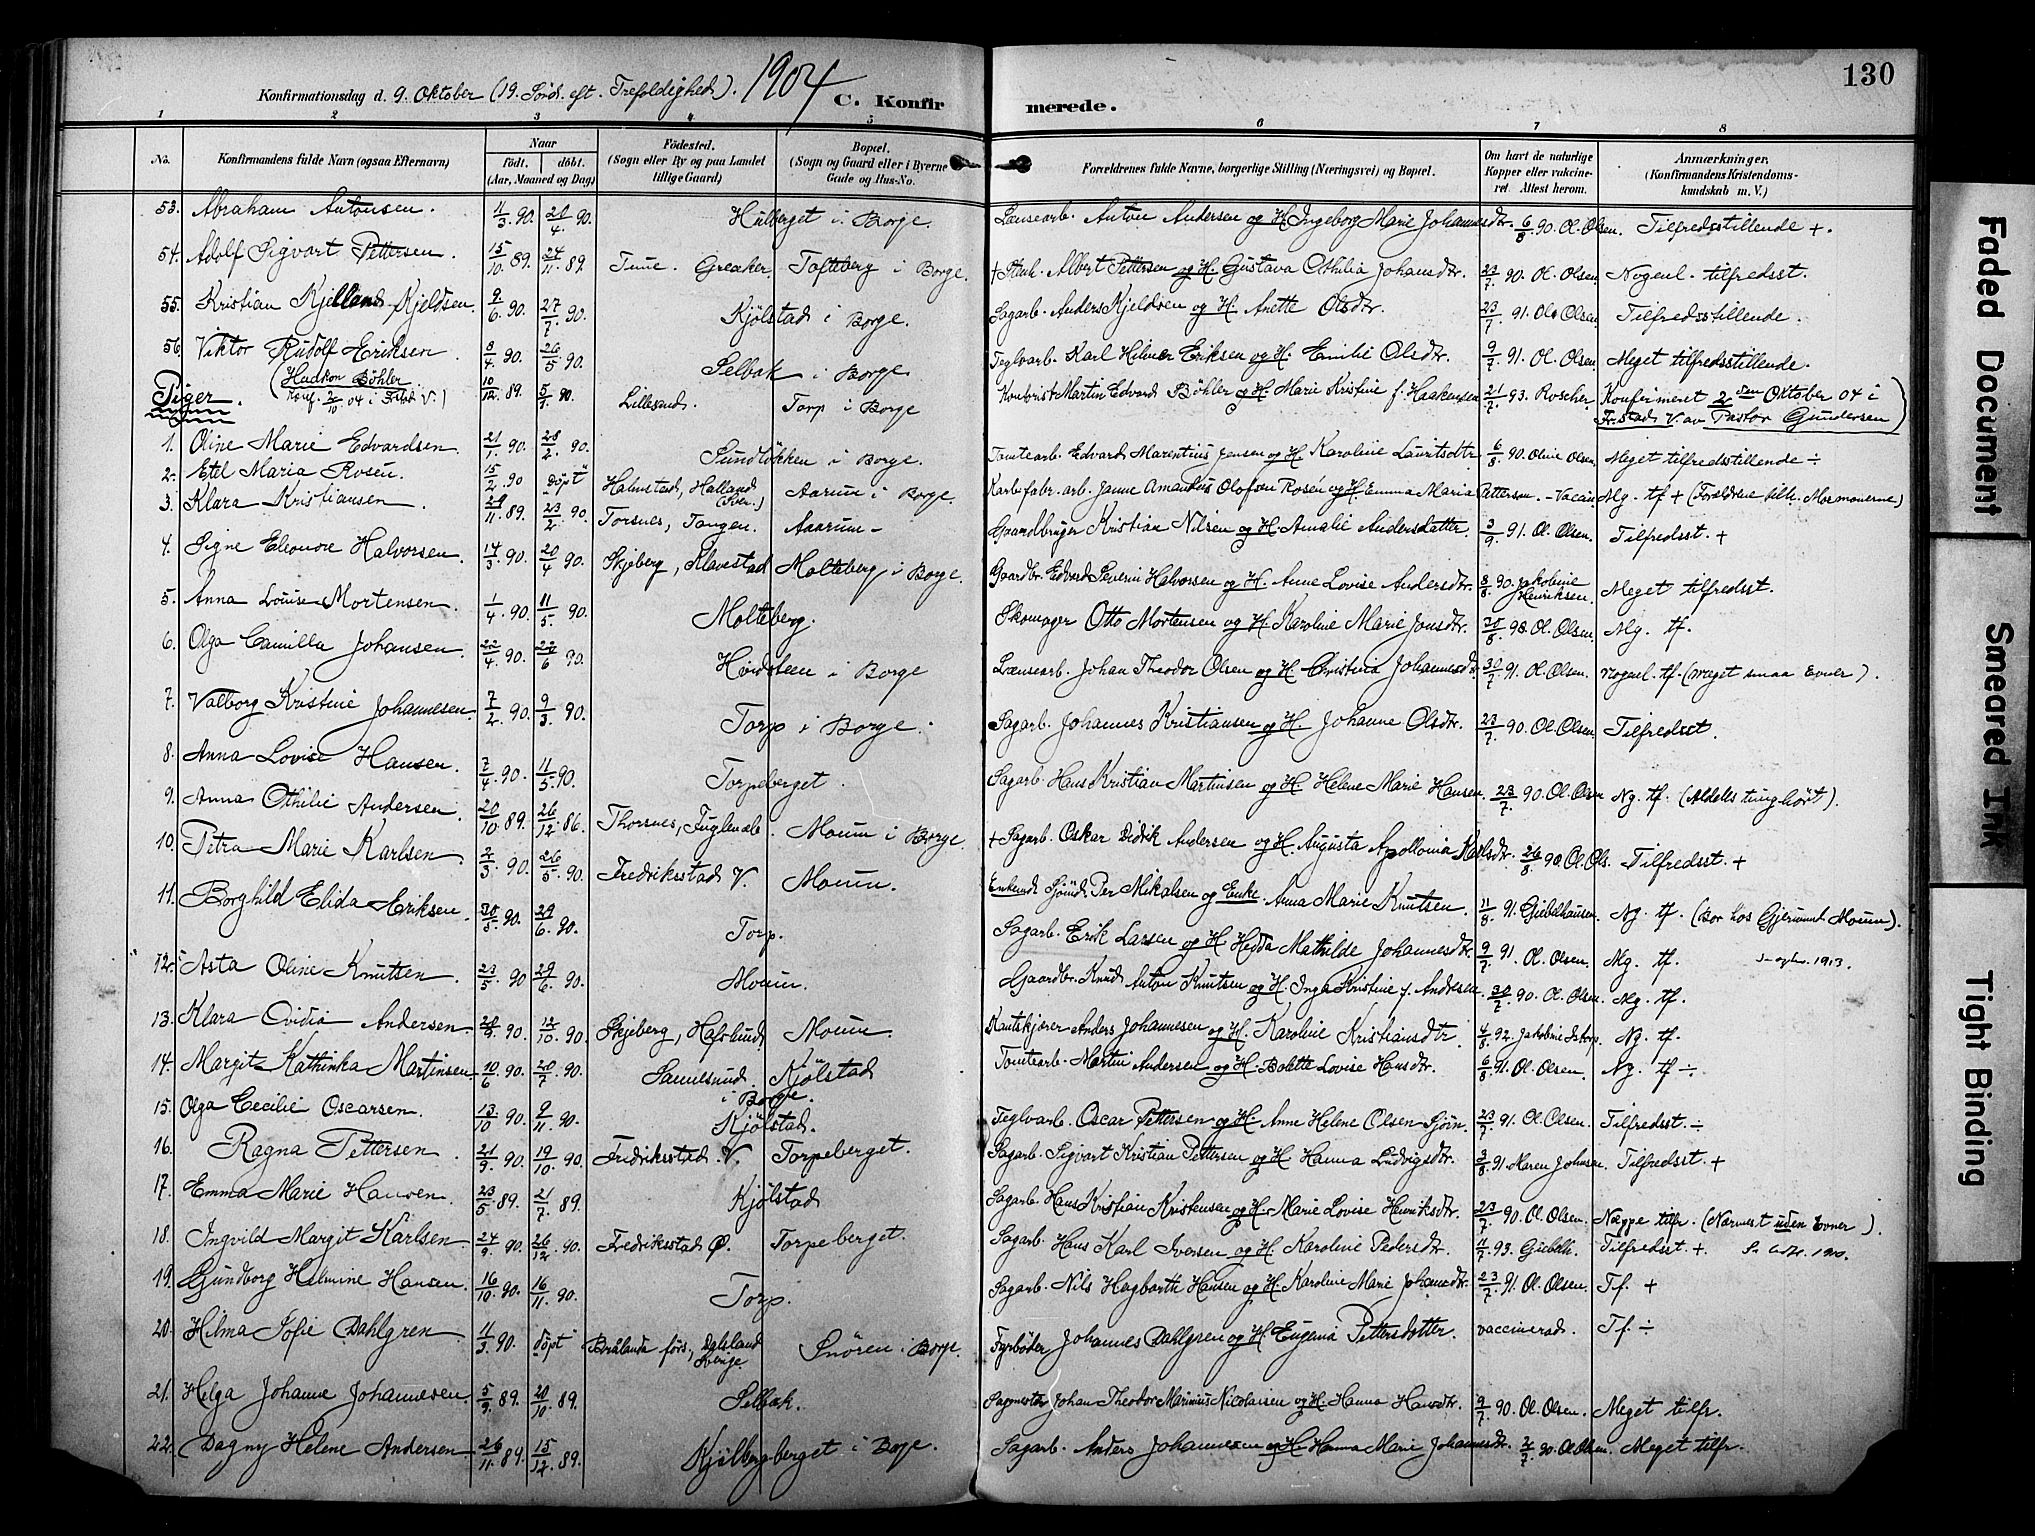 130
Konfirmationsdag d. 9. Oktober (19. Sönd. eft. Trefoldighed). 1904 C. Konfirmerede.
1 2 3 4 5 6 7 8
No. Konfirmandens fulde Navn (ogsaa Efternavn) Naar født. døbt. (Aar, Maaned og Dag) Fødested. (Sogn eller By og paa Landet tillige Gaard) Bopæl. (Sogn og Gaard eller i Byerne Gade og Hus-No. Forældrenes fulde Navne, borgerlige Stilling (Næringsvei) og Bopæl. Om havt de naturlige Kopper eller vakcineret. Attest herom. Anmærkninger. (Konfirmandens Kristendomskundskab m. V.)
53. Abraham Antonsen. 11/3 90. 20/4 90. Hulberget i Borge. Lænsearb. Anton Andersen og H. Ingeborg Marie Johannesdtr. 6/8 90. Ol. Olsen. Tilfredsstillende +.
54. Adolf Sigvart Pettersen. 15/10 89. 24/11 89. Tune. Greaker. Tofteberg i Borge. + Albert Pettersen og H. Gustava Othilia Johansdtr. 23/7 90. Ol. Olsen. Nogenl. tilfredsst.
55. Kristian Kjelland Kjeldsen. 9/6 90. 27/7 90. Kjölstad i Borge. Sagarb. Anders Kjeldsen og H. Anette Olsdtr. 23/7 91. Ol. Olsen. Tilfredsstillende.
56. Viktor Rudolf Eriksen. 8/4 90. 26/5 90. Selbak i Borge Teglvarb. Karl Hilmer Eriksen og H. Emilie Olsdtr. 9/7 91. Ol. Olsen. Meget tilfredsstillende.
(Haakon Böhler Konf. 2/10 04 i F.stad V.) 10/12 89. 5/1 90. Lillesand. Torp i Borge Kontorist Martin Edvard Böhler og H. Marie Kristine f. Haakensen 21/7 93. Roscher. Konfirmeret 2den Oktober 04 i Fr.stad V. av Pastor Gundersen)
Piger.
1. Oline Marie Edvardsen 21/1 90. 28/2 90. Sundlökken i Borge. Tomtearb. Edvard Marentius Jensen og H. Karoline Lauritsdtr. 6/8 90. Oline Olsen. Meget tilfredsstillende ÷
2. Etel Maria Rosén. 15/2 90 döpt Halmstad, Halland (Sver.) Aarum i Borge Karbofabr. arb. Janne Amandus Olofson Rosén og H. Emma Maria Pettersson. - Vaccin. Mg. tf + (Forældrene tilh. Mormonerne)
3. Klara Kristiansen 28/11 89. 23/2 90. Torsnes, Tangen. Aarum - Gaardbruger Kristian Nilsen og H. Amalie Andersdatter. 3/9 91. Ol. Olsen. Tilfredsst. +
4. Signe Eleonore Halvorsen. 14/3 90. 20/4 90. Skjeberg, Klavestad Molteberg i Borge. Gaardbr. Edvard Severin Halvorsen og H. Anne Lovise Andersdtr. 8/8 90. Jakobine Henriksen. Meget tilfredsst.
5. Anna Louise Mortensen. 1/4 90. 11/5 90. Molteberg. Skomager Otto Mortensen og H. Karoline Marie Jonsdtr. 30/8 98. Ol. Olsen. Mg. tf.
6. Olga Camilla Johansen. 22/4 90. 22/6 90. Hvidsteen i Borge Lænsearb. Johan Theodor Olsen og H. Christina Johannesdtr. 30/7 91. Ol. Olsen. Nogenl. tf. (meget smaa Evner).
7. Valborg Kristine Johannesen. 7/2 90. 9/3 90. Torp i Borge. Sagarb. Johannes Kristiansen og H. Johanne Olsdtr. 23/7 90. Ol. Olsen. Tilfredsst.
8. Anna Lovise Hansen. 7/4 90. 11/5 90. Torpeberget. Sagarb. Hans Kristian Martinsen og H. Helene Marie Hansen. 23/7 90. Ol. Olsen Ng. tf. (Aldeles tunghört).
9. Anna Othilie Andersen. 20/10 89. 26/12 86. Thorsnes, Fuglevik. Moum i Borge + Sagarb. Oskar Didrik Andersen og H. Augusta Apollonia Karlsdtr. 26/8 90 Ol. Ols. Tilfredsst. +
10. Petra Marie Karlsen 2/3 90. 26/5 90. Fredriksstad V. Moum. Enkemd. Sjömd. Per Mikalsen og Enke Anna Marie Knutsen. 11/8 91. Giebelhausen. Ng. tf. (Bor hos Gjermund Moum).
11. Borghild Elida Eriksen. 30/5 90. 29/6 90. Torp. Sagarb. Erik Larsen og H. Hedda Mathilde Johannesdtr. 9/7 91. Ol. Olsen. Mg. tf. 1913.
12. Asta Oline Knutsen. 23/5 90 29/6 90. Moum. Gaardbr. Knud Anton Knutsen og H. Inga Kristine f. Andresen 30/7 90. Ol. Olsen. Mg. tf.
13. Klara Ovidia Andersen. 28/9 90. 12/10 90. Skjeberg, Hafslund. Moum Kantskjærer Anders Johannesen og H. Karoline Kristiansdtr. 4/8 92. Jakobine Istorp. Ng. tf.
14. Margit Kathinka Martinsen. 10/6 90. 20/7 90. Sannesund. Kjölstad i Borge. Tomtearb. Martin Andersen og H. Bolette Lovise Hansdtr. 6/8 91. Ol. Olsen. Ng. tf ÷
15. Olga Cecilie Oscarsen. 13/10 90. 9/11 90. Kjölstad. Teglvarb. Oscar Pettersen og H. Anne Helene Olsen Sjöin. 23/7 91. Ol. Olsen. Tilfredsst. ÷
16. Ragna Pettersen. 21/9 90. 19/10 90. Fredriksstad V. Torpeberget. Sagarb. Sigvart Kristian Pettersen og H. Hanna Ludvigsdtr. 3/8 91 Maren Johnsen. Tilfredsst. +
17. Emma Marie Hansen. 23/5 89. 21/7 89. Kjölstad Sagarb. Hans Kristian Kristensen og H. Marie Lovise Henriksdtr. 23/7 90. Ol. Olsen. Næppe tilfr. (Nærmest uden Evner).
18. Ingvild Margit Karlsen. 24/9 90. 26/12 90. Fredriksstad Ø. Torpeberget. Sagarb. Hans Karl Iversen og H. Karoline Pedersdtr. 11/7 93. Giebelh. Tilfredsst. +
19. Gundborg Helmine Hansen. 16/10 90. 16/11 90. Torp. Sagarb. Nils Hagbarth Hansen og H. Karoline Marie Johansdtr. 23/7 91. Ol. Olsen. Tf. +
20. Hilma Sofie Dahlgren 11/3 90. döpt Brålanda förs., Dalsland Sverige. Snören i Borge. Fyrböder Johannes Dahlgren og H. Eugenia Pettersdotter. vaccinerad. Tf. ÷
21. Helga Johanne Johannesen. 5/9 89. 20/10 89. Selbak. Sagmester Johan Theodor Marinius Nicolaisen og H. Hanna Hansdtr. 9/7 90. Ol. Olsen. Meget tilfr.
22. Dagny Helene Andersen. 26/11 89. 15/12 89. Kjölbergberget i Borge. Sagarb. Anders Johannesen og H. Hanna Marie Johannesdtr. 2/7 90. Ol Olsen. Meget tilfr.
Faded Document
Smeared Ink
Tight Binding